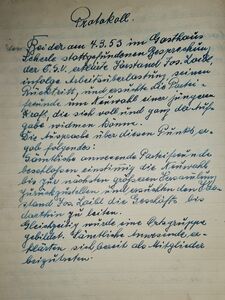 Protokoll.
Bei der am 4.3.53 im Gasthaus
Scherle stattgefundenen Besprechung
der erklärte Vorstand Jos. Laibl
infolge Arbeitsüberlastung seinen
Rücktritt, und ersuchte die Partei-
freunde um Neuwahl einer jüngeren
Kraft, die sich voll und ganz der Auf-
gabe widmen könne.
Die Aussprache über diesen Punkt er-
gab folgendes:
Sämtliche anwesende Parteifreunde
beschlossen einstimmig die Neuwahl
bis zur nächsten grösseren Versammlung
zurückzustellen und ersuchten den
stand Jos. Laibl die Geschäfte bis
dorthin zu leiten.
Gleichzeitig wurde eine Ortsgruppe
gebildet. Sämtliche Anwesende er-
klärten sich bereit als Mitglieder
beizutreten.